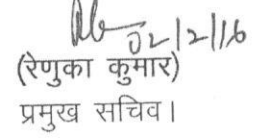 02/2/16
(रेणुका कुमार)
प्रमुख सचिव।